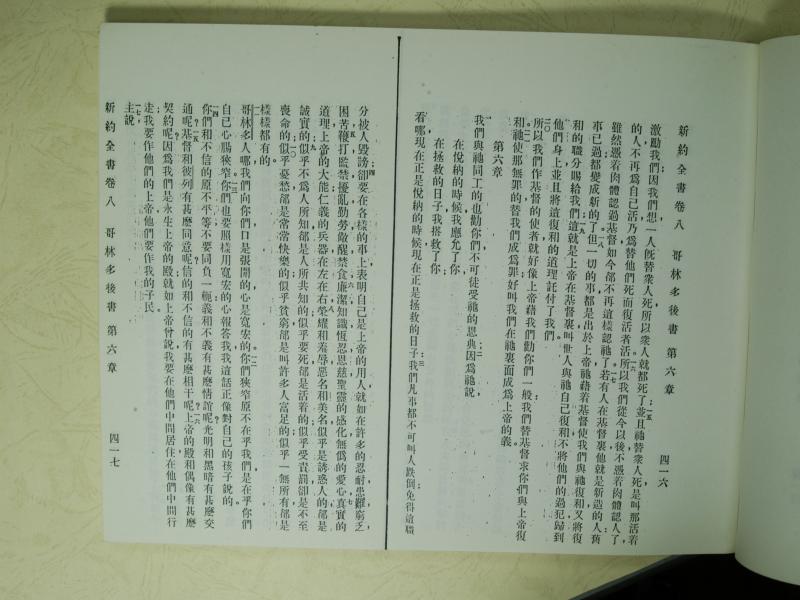 新約全書卷八 哥林多後書 第六章 四一六
激勵我們因我們想一人旣替衆人死所以衆人就都死了一五並且祂替衆人死是叫那活着
的人不再爲自己活乃爲替他們死而復活者活一六所以我們從今以後不憑着肉體認人了
雖然憑着肉體認過基督如今卻不再這樣認祂了一七若有人在基督裏他就是新造的人舊
事已過都變成新的了一八但一切的事都是出於上帝祂藉着基督使我們與祂復和又將復
和的職分賜給我們一九這就是上帝在基督裏叫世人與祂自己復和不將他們的過犯歸到
他們身上並且將這復和的道理託付了我們
二〇所以我們作基督的使者就好像上帝藉我們勸你們一般我們替基督求你們與上帝復
和二一祂使那無罪的替我們成爲罪好叫我們在祂裏面成爲上帝的義
第六章
我們與祂同工的也勸你們不可徒受祂的恩典二因爲祂說
在悅納的時候我應允了你
在拯救的日子我搭救了你
看哪現在正是悅納的時候現在正是拯救的日子三我們凡事都不可叫人跌倒免得這職
分被人毀謗四卻要在各樣的事上表明自己是上帝的用人就如在許多的忍耐患難窮乏
困苦五鞭打監禁擾亂勤勞儆醒禁食六廉潔知識恆忍恩慈聖靈的感化無僞的愛心七真實的
道理上帝的大能仁義的兵器在左在右八榮耀和羞辱惡名和美名似乎是誘惑人的卻是
誠實的九似乎不爲人所知卻是人所共知的似乎要死卻是活着的似乎受責罰卻是不至
喪命的一〇似乎憂愁卻是常常快樂的似乎貧窮卻是叫許多人富足的似乎一無所有卻是
樣樣都有的
一一哥林多人哪我們向你們口是張開的心是寬宏的一二你們狹窄原不在乎我們是在乎你們
自己心腸狹窄一三你們也要照樣用寬宏的心報答我我這話正像對自己的孩子說的
一四你們和不信的原不平等不要同負一軛義和不義有甚麼情誼呢光明和黑暗有甚麼交
通呢一五基督和彼列有甚麼同意呢信的和不信的有甚麼相干呢一六上帝的殿和偶像有甚麼
契約呢因爲我們是永生上帝的殿就如上帝曾說我要在他們中間居住在他們中間行
走我要作他們的上帝他們要作我的子民
一七主說
新約全書卷八 哥林多後書 第六章 四一七